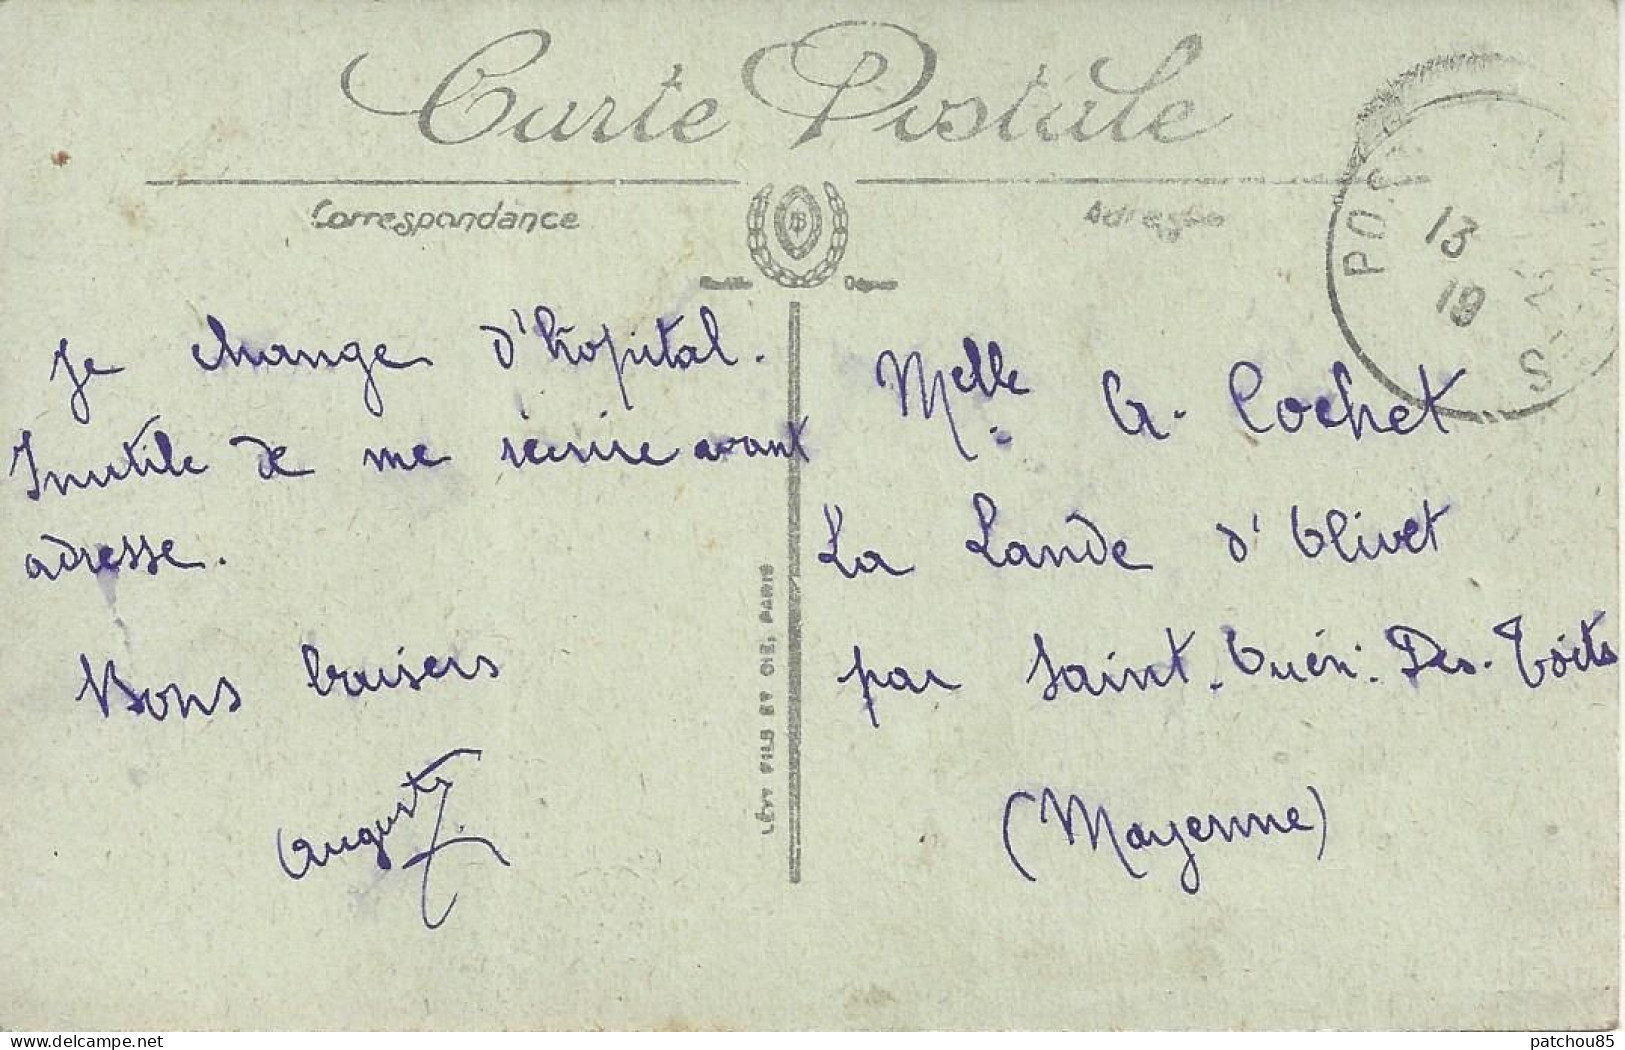 Carte Postale
Correspondance
Adresse
PO
13
19
S
Je change d'hôpital.
Inutile de me récrire avant
adresse.
Bons baisers
Auguste
LÉVY FILS ET CIE, PARIS
Melle A. Cochet
La Lande d'Olivet
par Saint-Ouën-Des-Toits
(Mayenne)
www.delcampe.net
patchou85